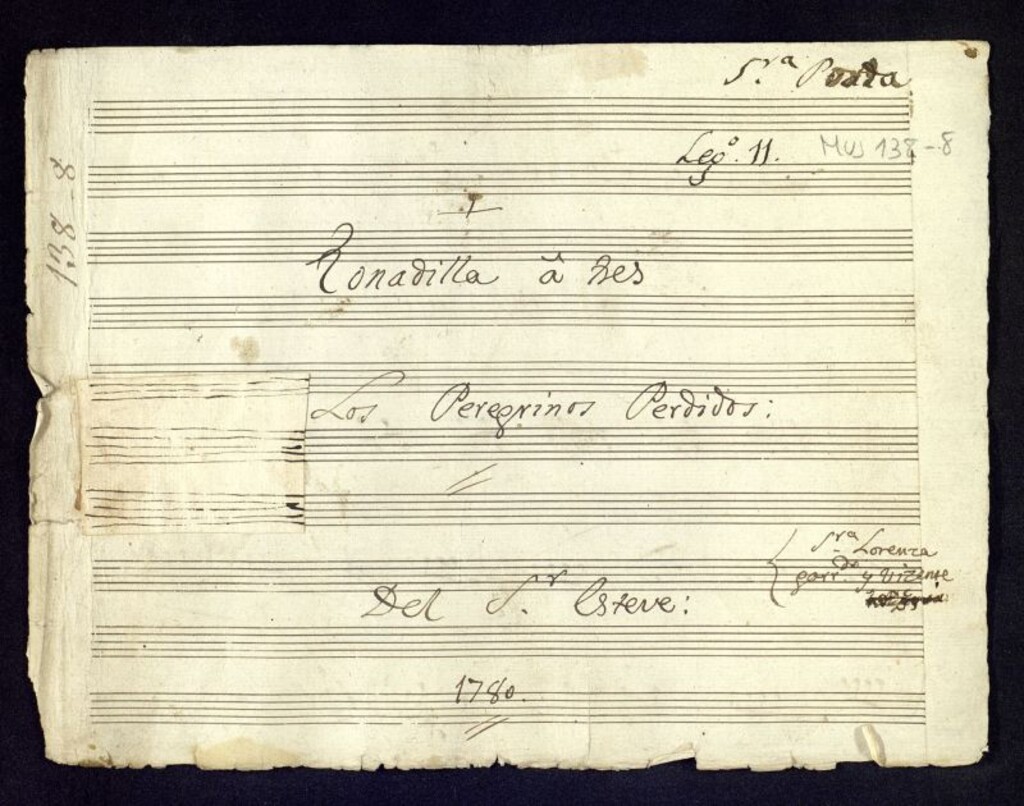 S.ra Porta
Leg.o 11. Mus 138-8
138-8
Tonadilla â tres
Los Peregrinos Perdidos:
S.ra Lorenza
garr.do y Vizente
Del S.r Esteve:
1780.